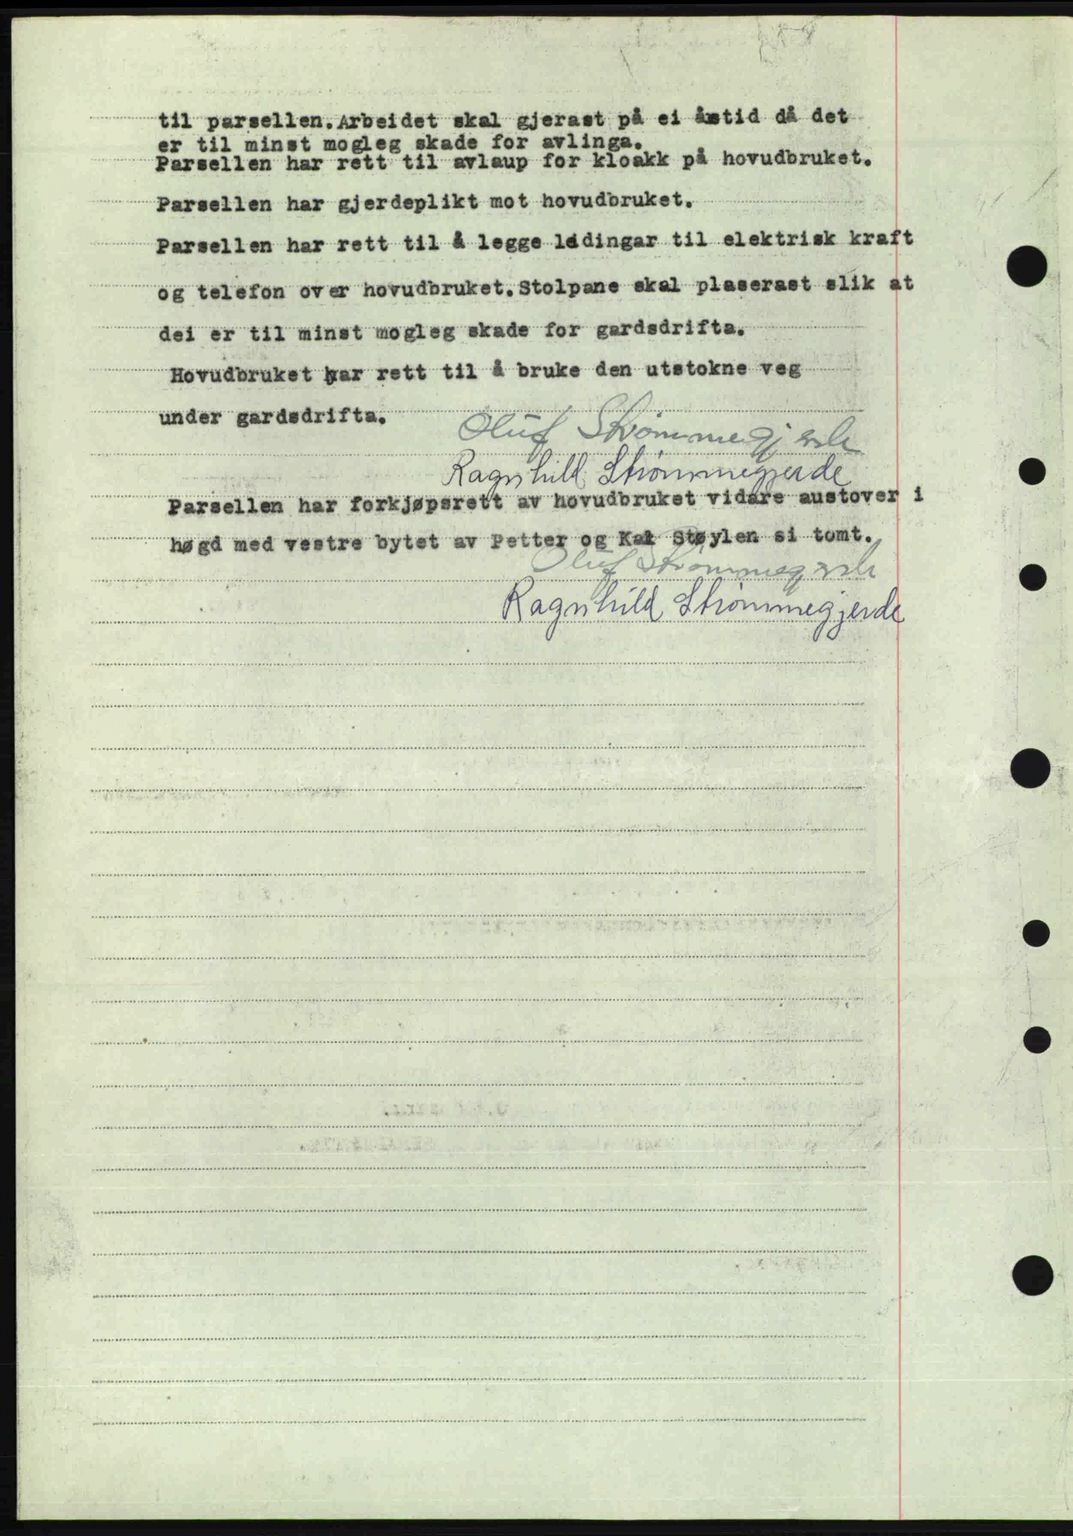 til parsellen.Arbeidet skal gjerast på ei åstid då det
er til minst mogleg skade for avlinga.
Parsellen har rett til avlaup for kloakk på hovudbruket.
Parsellen har gjerdeplikt mot hovudbruket.
Parsellen har rett til å legge leidingar til elektrisk kraft
og telefon over hovudbruket.Stolpane skal plaserast slik at
dei er til minst mogleg skade for gardsdrifta.
Hovudbruket har rett til å bruke den utstokne veg
under gardsdrifta.
Oluf Strømmegjerde
Ragnhild Strømmegjerde
Parsellen har forkjøpsrett av hovudbruket vidare austover i
høgd med vestre bytet av Petter og Kak Støylen si tomt.
Oluf Strømmegjerde
Ragnhild Strømmegjerde